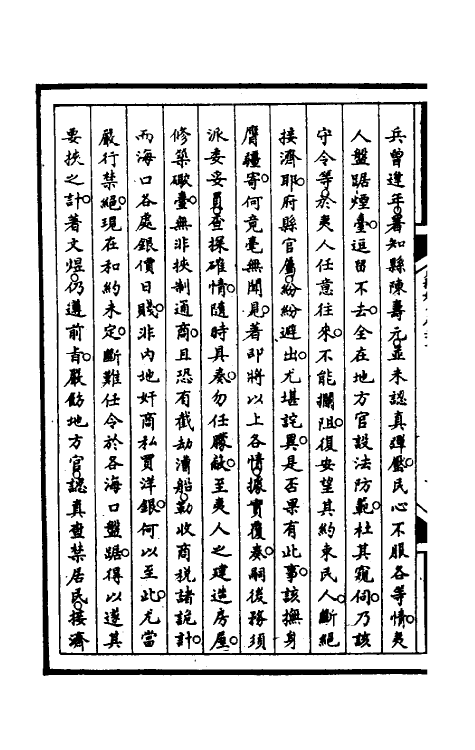 兵曾逢年署知縣陳壽元並未認真彈壓民心不服各等情夷
人盤踞煙臺逗留不去全在地方官設法防範杜其窺伺乃該
守令等於夷人任意往來不能攔阻復安望其約束民人斷絕
接濟耶府縣官屬紛紛避出尤堪詫異是否果有此事該撫身
膺疆寄何竟毫無聞見著即將以上各情據實覆奏嗣後務須
派委妥員查探確情隨時具奏勿任朦蔽至夷人之建造房屋
修築礮臺無非挾制通商且恐有截劫漕船勒收商税諸詭計
而海口各處銀價日賤非内地奸商私買洋銀何以至此尤當
嚴行禁絕現在和約未定斷難任令於各海口盤踞得以遂其
要挾之計著文煜仍遵前旨嚴飭地方官認真查禁居民接濟